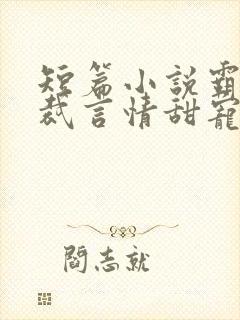 短篇小説霸
裁言情甜寵
閻志就